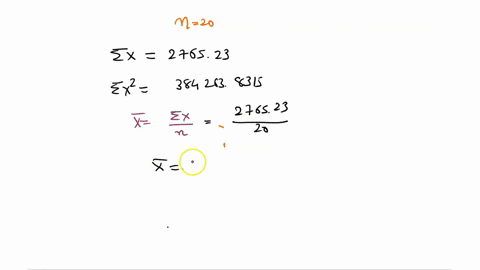 n=20
Σx = 2765.23
Σx² = 384263.8315
x̄ = Σx/n = 2765.23/20
x̄ =